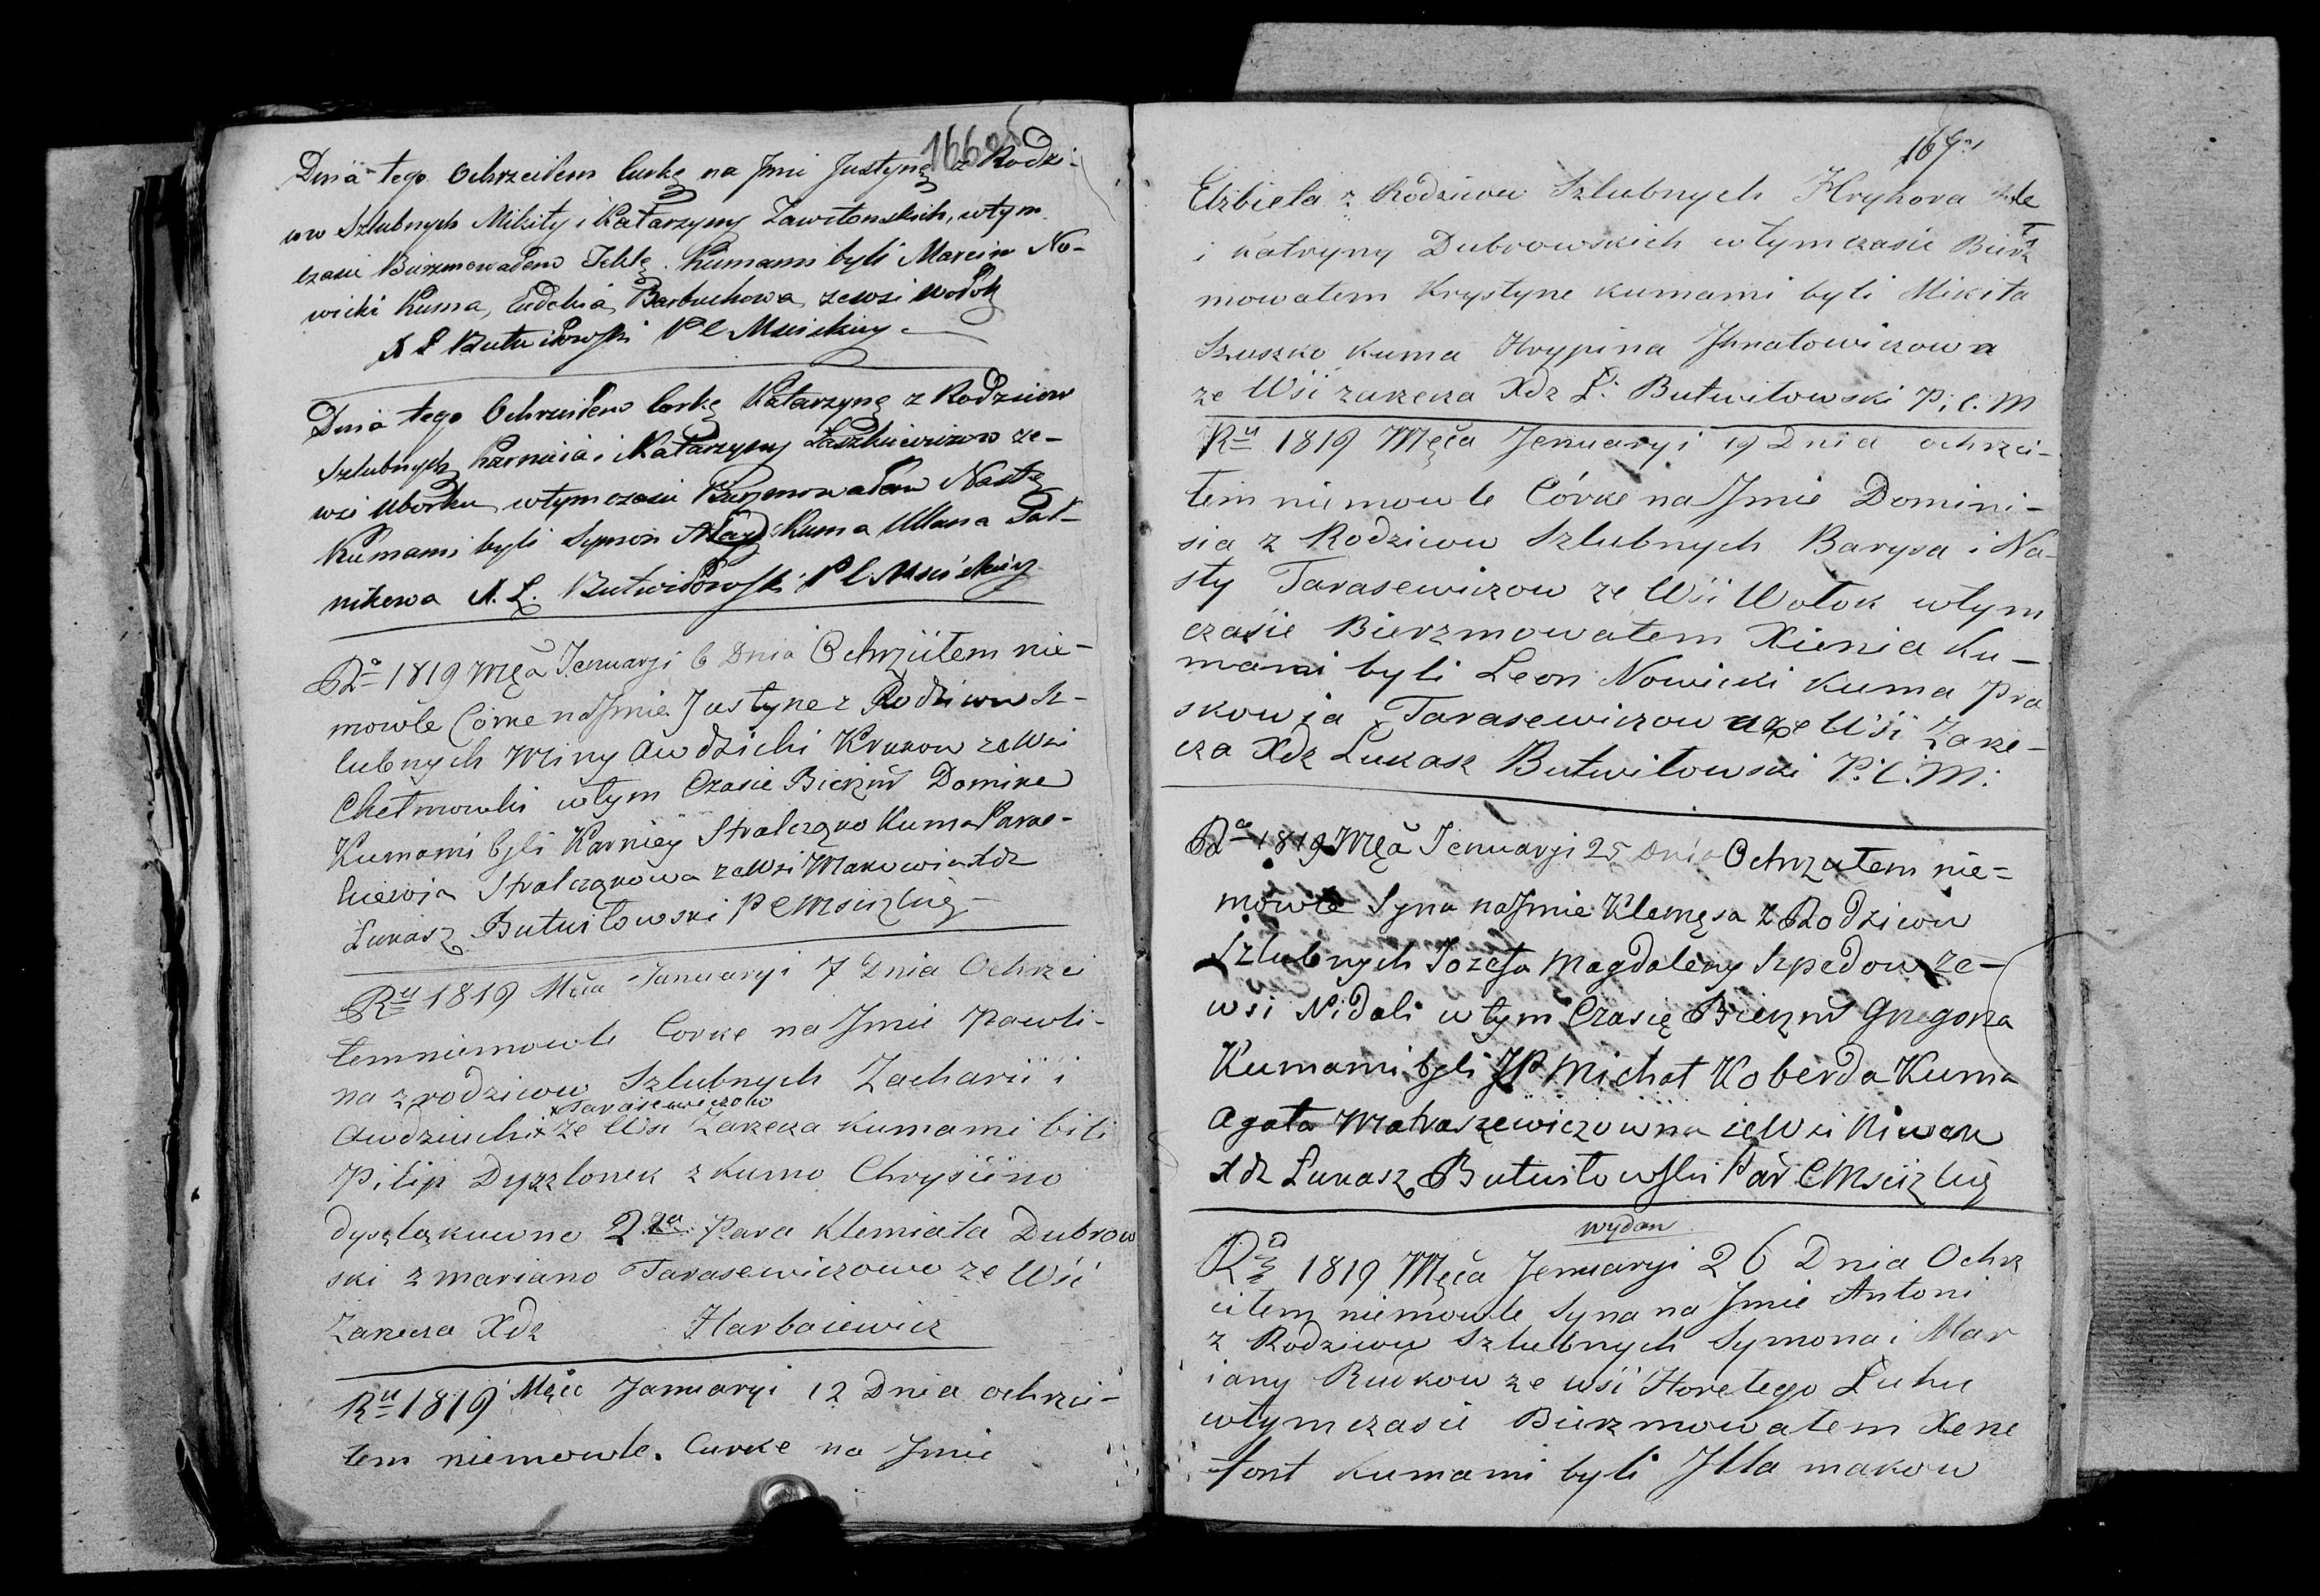 166
Dnia tego Ochrzciłem Curkę na Jmi Justynę z Rodzi-
cow Szlubnych Mikity i Katarzyny Zawitonskich, wtym
czasie Bierzmowałem Teklę. Kumami byli Marcin No-
wicki Kuma, Eudokia Bartuchowa zewsi Wołok
X Ł Butwiłowski P C Mscizkiey
Dnia tego Ochrzciłem Corkę Katarzynę z Rodzicow
Szlubnych Karnieia i Katarzyny Laszkiewiczow ze-
wsi Uborku wtymczasie Bierzmowałem Nastę
Kumami byli Symon Kuma Ullana Pat-
nikowa X. Ł. Butwiłowski P C Mscizkiey
R° 1819 Męca Jenuaryi 6 Dnia Ochrzciłem nie-
mowle Córke na Jmie Justyne z Rodzicow Sz-
lubnych Miny Awdzichi Krukow ze Wsi
Chełmowki wtym Czasie Bierzm Domine
Kumami byli Karniey Stralczono Kuma Paras-
kiewia Stralczonowa ze Wsi Makowia Xdz
Łukasz Butwiłowski P C Mscizkiey
Ru 1819 Męca Januaryi 7 Dnia Ochrzci
łem niemowle Corke na Jmie Pawli-
na z rodzicow Szlubnych Zacharii i
x Tarasewiczow
Awdziuchi x ze Wsi Zarzecza kumami bili
Pilip Dyszlonek z kumo Chrysiino
dyszlakuwno 2ga Para Klemiata Dubrow
ski z mariano Tarasewiczowo ze Wsi
Zarzecza Xdz Harbaciewicz
Ru 1819 Męca Januaryi 12 Dnia ochrzci-
łem niemowle Curke na Jmie
167
Elzbieta z Rodzicow Szlubnych Hryhora
i Katryny Dubrowskich wtymczasie Bierz
mowałem Krystyne kumami byli Mikita
Szuszko kuma Hrypina Jhnatowiczowa
ze Wsi zarzecza Xdz Ł: Butwiłowski P. C. M
Ru 1819 Męca Jenuaryi 19 Dnia ochrzci-
łem niemowle Córke na Jmie Domini-
sia z Rodzicow Szlubnych Barysa i Na-
sty Tarasewiczow ze Wsi Wołok wtym
czasie Bierzmowałem Xienia Ku-
mami byli Leon Nowicki kuma Pra
skowia Tarasewiczowa ze Wsi Zarze-
cza Xdz Łukasz Butwiłowski P: C: M:
Ra 1819 Męca Jenuaryi 25 Dnia Ochrzciłem nie-
mowle Syna na Jmie Klemęsa z Rodzicow
Szlubnych Jozefa Magdaleny Szpedow ze-
wsi Nidali wtym Czasię Bierzm Grzegorza
Kumami byli JP Michał Koberda Kuma
Agata Matraszewiczowna ze Wsi Niwek
Xdz Łukasz Butwiłowski Par C Mscizkiey
wydan
Ra 1819 Męca Jenuaryi 26 Dnia Ochrz
ciłem niemowle Syna na Jmie Antoni
z Rodzicow Szlubnych Symona i Mar
iany Rudkow ze wsi Horełego Łuhu
wtymczasie Bierzmowałem Xene
font Kumami byli Jlla makow